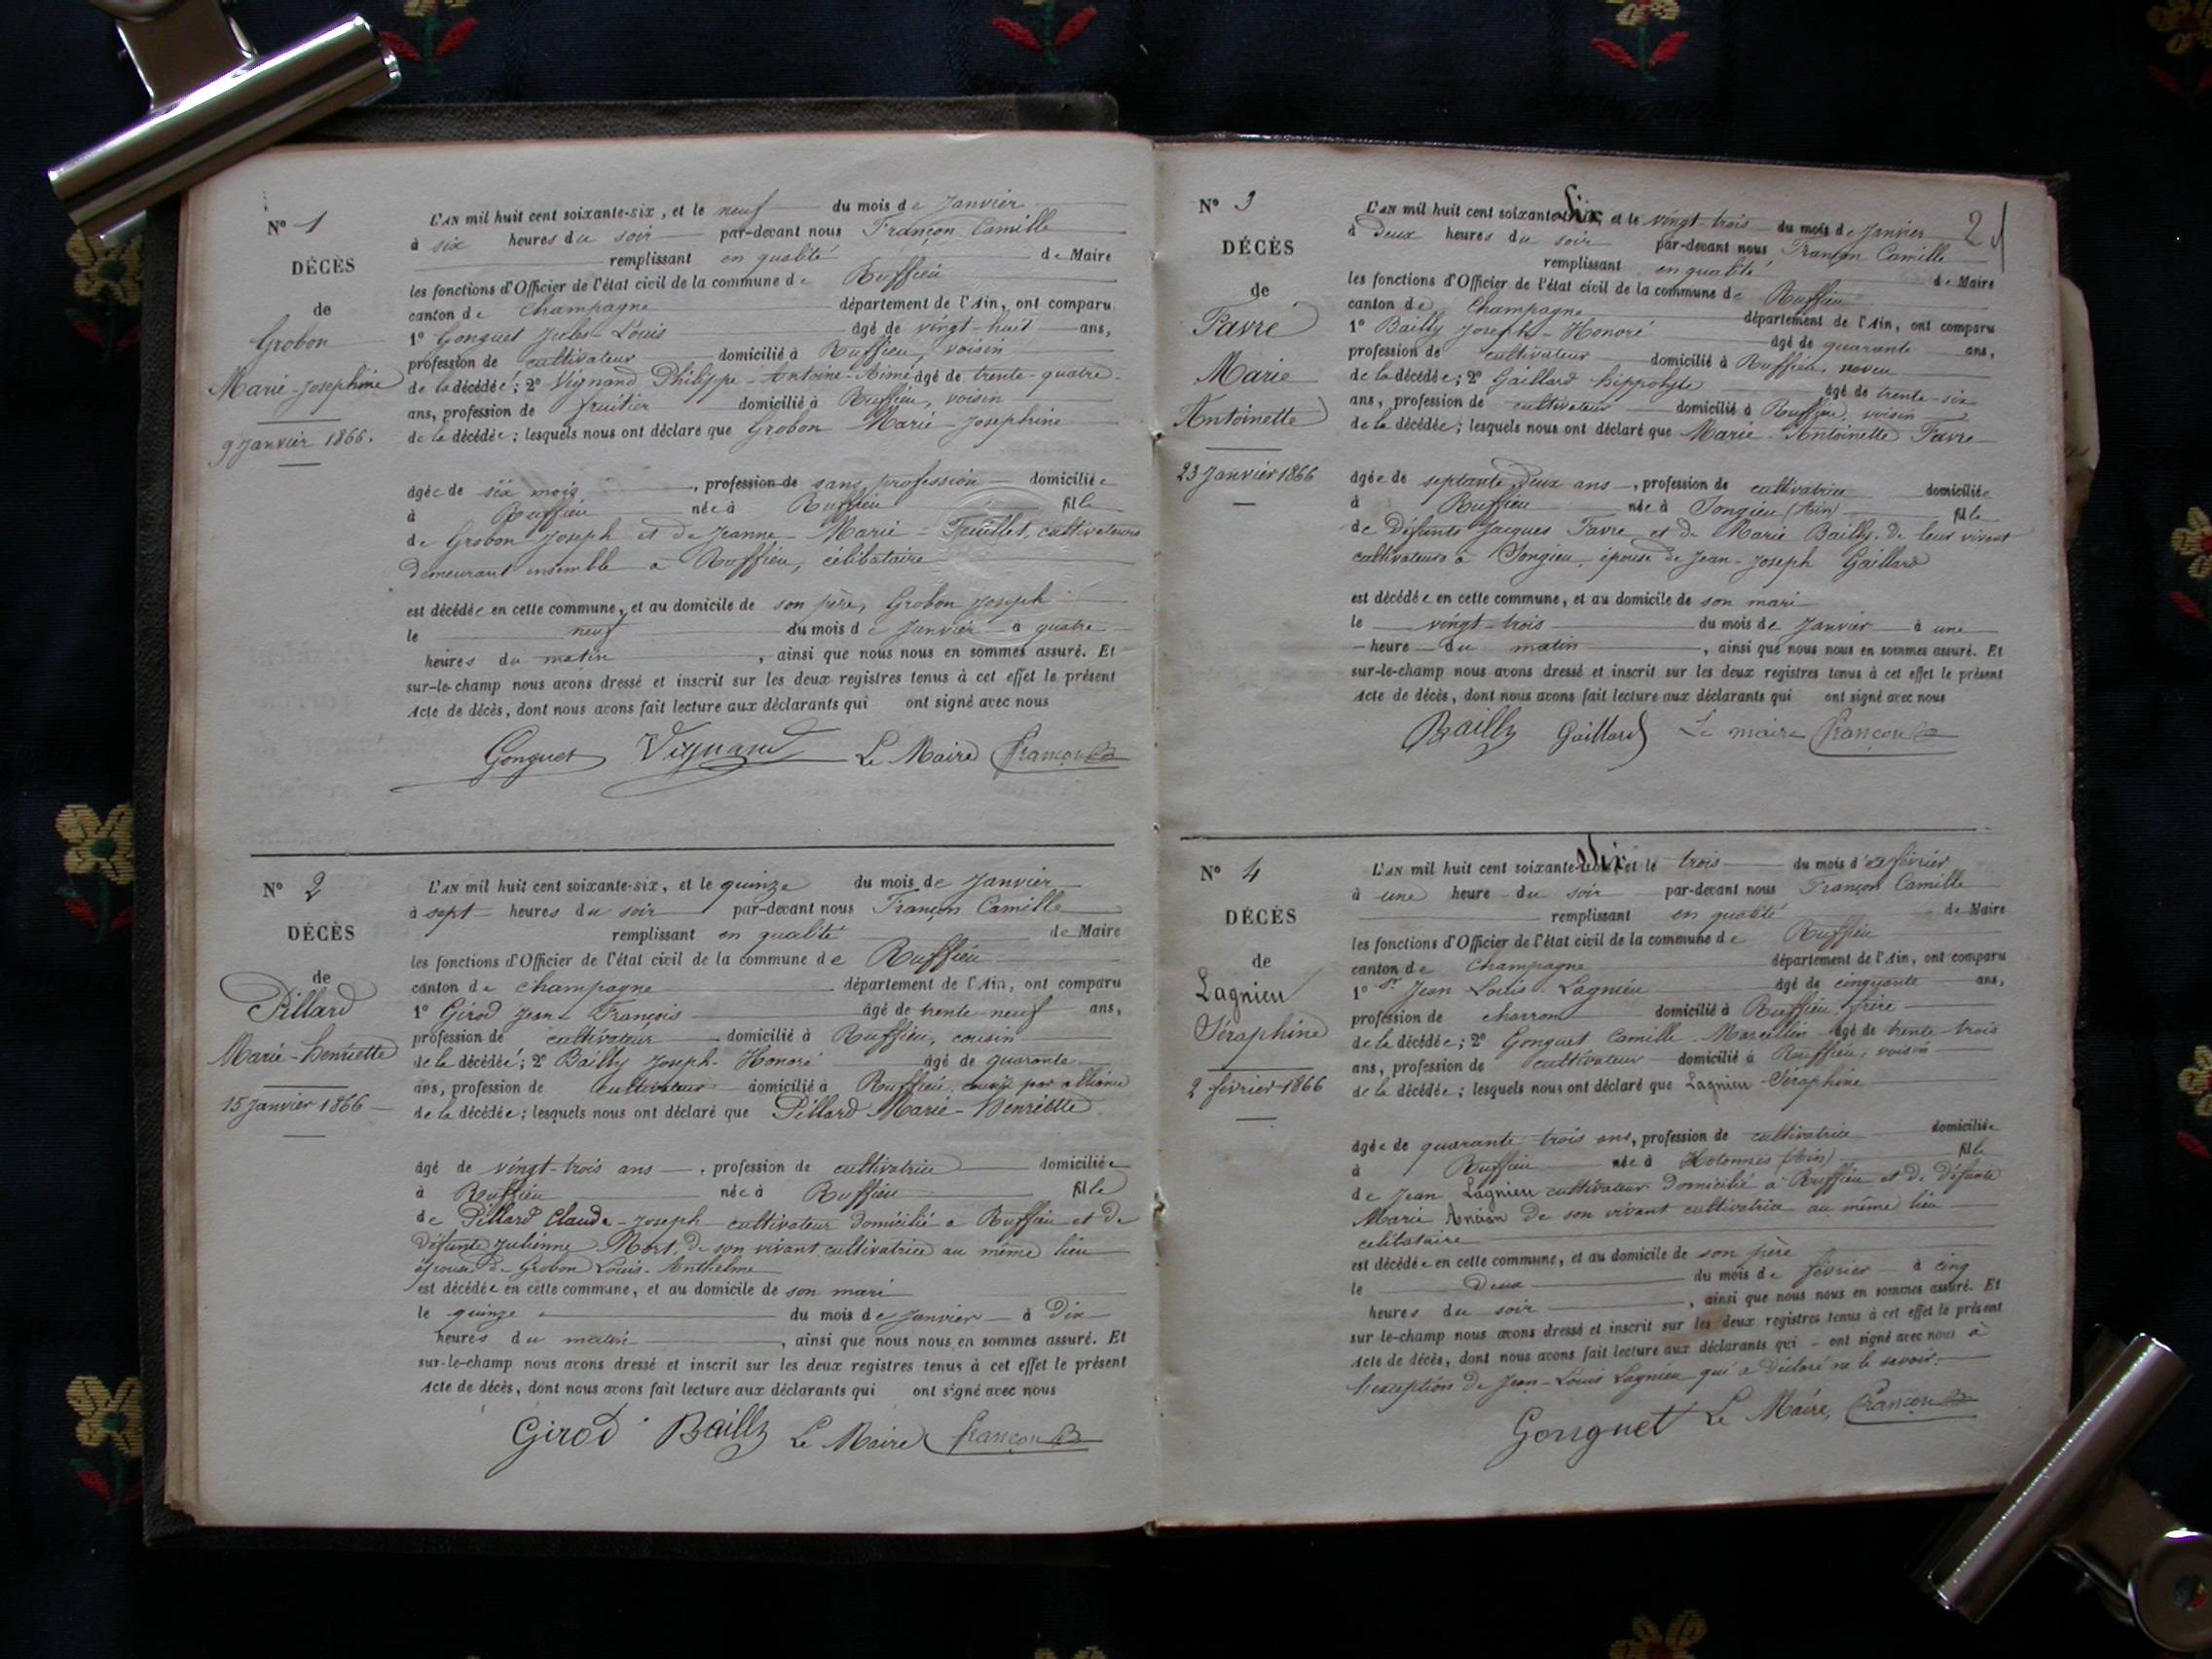 N° 1
DÉCÈS
de
Grobon
Marie-Josephine
9 Janvier 1866.
L'AN mil huit cent soixante-six, et le neuf du mois de Janvier
à six heures du soir par-devant nous Françon Camille
remplissant en qualité de Maire
les fonctions d'Officier de l'état civil de la commune de Ruffieu
canton de Champagne département de l'Ain, ont comparu
1° Gonguet Jules-Louis âgé de vingt-huit ans,
profession de cultivateur domicilié à Ruffieu, voisin
de la décédée; 2° Vignand Philippe-Antoine-Aimé âgé de trente-quatre
ans, profession de fruitier domicilié à Ruffieu, voisin
de la décédée; lesquels nous ont déclaré que Grobon Marie-Josephine
âgée de six mois, profession de sans profession domiciliée
à Ruffieu née à Ruffieu fille
de Grobon Joseph et de Jeanne-Marie Feuillet, cultivateurs
demeurant ensemble a Ruffieu, célibataire
est décédée en cette commune, et au domicile de son père, Grobon Joseph
le neuf du mois de Janvier à quatre
heures du matin, ainsi que nous nous en sommes assuré. Et
sur-le-champ nous avons dressé et inscrit sur les deux registres tenus à cet effet le présent
Acte de décès, dont nous avons fait lecture aux déclarants qui ont signé avec nous
Gonguet Vignand Le Maire Françon
N° 2
DÉCÈS
de
Pillard
Marie-henriette
15 Janvier 1866
L'AN mil huit cent soixante-six, et le quinze du mois de Janvier
à sept heures du soir par-devant nous Françon Camille
remplissant en qualité de Maire
les fonctions d'Officier de l'état civil de la commune de Ruffieu
canton de Champagne département de l'Ain, ont comparu
1° Girod Jean-François âgé de trente-neuf ans,
profession de cultivateur domicilié à Ruffieu, cousin
de la décédée; 2° Bailly Joseph-Honoré âgé de quarante
ans, profession de cultivateur domicilié à Ruffieu, cousin par alliance
de la décédée; lesquels nous ont déclaré que Pillard Marie-henriette
âgé de vingt-trois ans, profession de cultivatrice domiciliée
à Ruffieu née à Ruffieu fille
de Pillard Claude-Joseph cultivateur domicilié a Ruffieu et de
défunte Julienne Mort, de son vivant cultivatrice au même lieu
épouse de Grobon Louis-Anthelme
est décédée en cette commune, et au domicile de son mari
le quinze du mois de Janvier à dix
heures du matin, ainsi que nous nous en sommes assuré. Et
sur-le-champ nous avons dressé et inscrit sur les deux registres tenus à cet effet le présent
Acte de décès, dont nous avons fait lecture aux déclarants qui ont signé avec nous
Girod Bailly Le Maire Françon
N° 3
DÉCÈS
de
Favre
Marie
Antoinette
23 Janvier 1866
2
L'AN mil huit cent soixante-six et le vingt-trois du mois de Janvier
à deux heures du soir par-devant nous Françon Camille
remplissant en qualité de Maire
les fonctions d'Officier de l'état civil de la commune de Ruffieu
canton de Champagne département de l'Ain, ont comparu
1° Bailly Joseph-Honoré âgé de quarante ans,
profession de cultivateur domicilié à Ruffieu, neveu
de la décédée; 2° Gaillard hippolyte âgé de trente-six
ans, profession de cultivateur domicilié à Ruffieu, voisin
de la décédée; lesquels nous ont déclaré que Marie-Antoinette Favre
âgée de septante deux ans, profession de cultivatrice domiciliée
à Ruffieu née à Songieu (Ain) fille
de défunts Jacques Favre et de Marie Bailly, de leur vivant
cultivateurs a Songieu, épouse de Jean-Joseph Gaillard
est décédée en cette commune, et au domicile de son mari
le vingt-trois du mois de Janvier à une
heure du matin, ainsi que nous nous en sommes assuré. Et
sur-le-champ nous avons dressé et inscrit sur les deux registres tenus à cet effet le présent
Acte de décès, dont nous avons fait lecture aux déclarants qui ont signé avec nous
Bailly Gaillard Le maire Françon
N° 4
DÉCÈS
de
Lagnieu
Séraphine
2 février 1866
L'AN mil huit cent soixante-six et le trois du mois de février
à une heure du soir par-devant nous Françon Camille
remplissant en qualité de Maire
les fonctions d'Officier de l'état civil de la commune de Ruffieu
canton de Champagne département de l'Ain, ont comparu
1° Sr Jean Louis Lagnieu âgé de cinquante ans,
profession de charron domicilié à Ruffieu, frère
de la décédée; 2° Gonguet Camille Marcellin âgé de trente-trois
ans, profession de cultivateur domicilié à Ruffieu, voisin
de la décédée; lesquels nous ont déclaré que Lagnieu Séraphine
âgée de quarante trois ans, profession de cultivatrice domiciliée
à Ruffieu née à Hotonnes (Ain) fille
de Jean Lagnieu cultivateur domicilié a Ruffieu et de défunte
Marie Ancian de son vivant cultivatrice au même lieu
celibataire
est décédée en cette commune, et au domicile de son père
le deux du mois de février à cinq
heures du soir, ainsi que nous nous en sommes assuré. Et
sur-le-champ nous avons dressé et inscrit sur les deux registres tenus à cet effet le présent
Acte de décès, dont nous avons fait lecture aux déclarants qui ont signé avec nous à
l'exception de Jean-Louis Lagnieu qui a déclaré ne le savoir.
Gonguet Le Maire, Françon